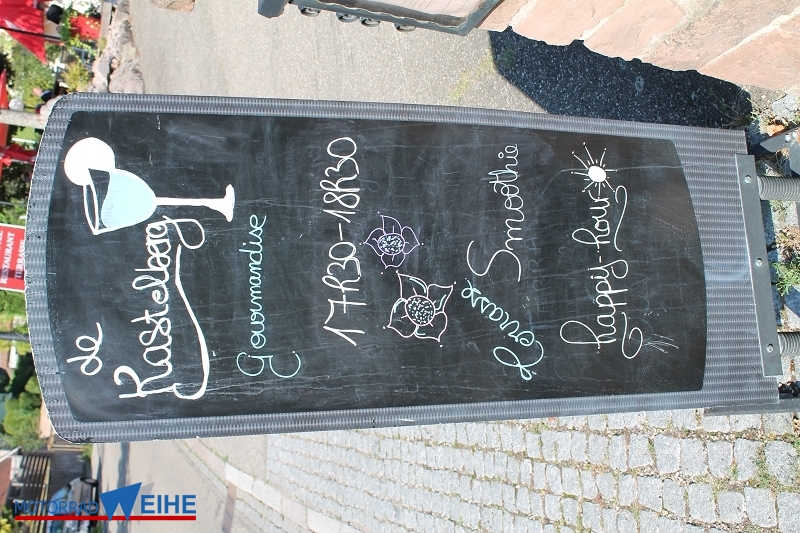 de
Kastelberg
Gourmandise
17h30-18h30
Terrasse
Smoothie
happy-hour
RESTAURANT
TERRASSE
MOTORRAD WEIHE